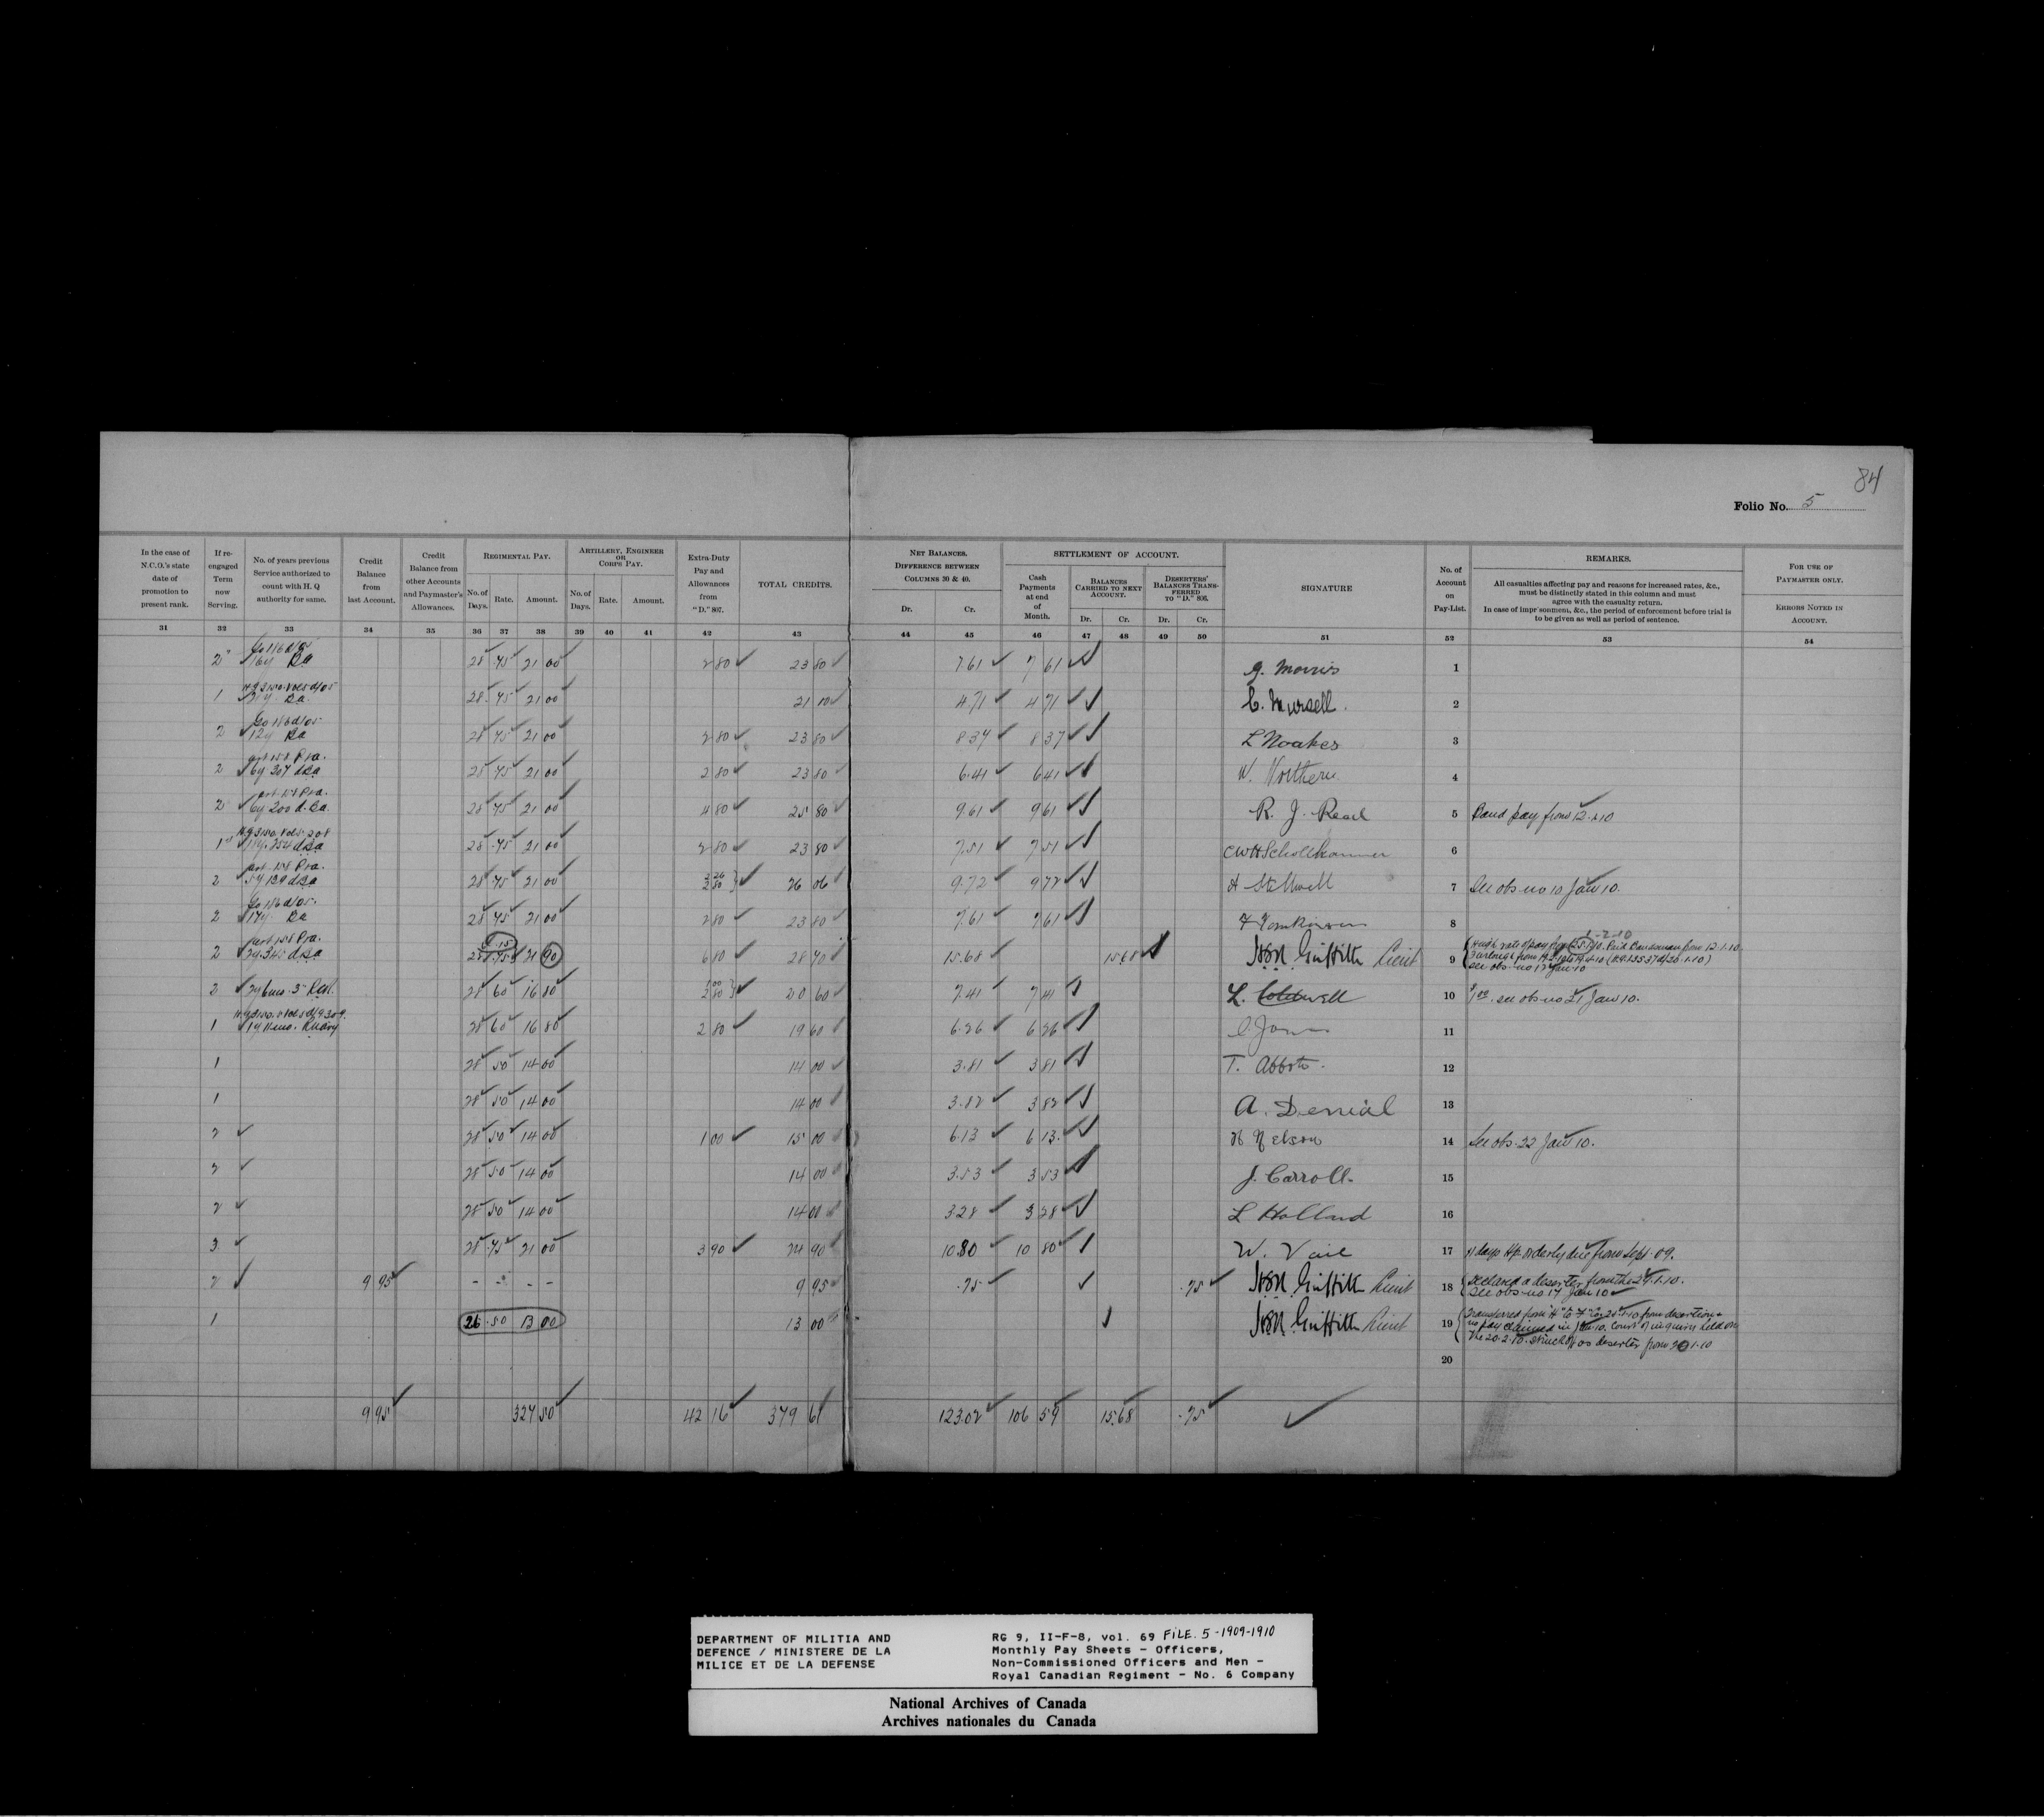 84
Folio No. 5
In the case of N.C.O.'s state date of promotion to present rank.
If re-engaged Term now Serving.
No. of years previous Service authorized to count with H. Q authority for same.
Credit Balance from last Account.
Credit Balance from other Accounts and Paymaster's Allowances.
REGIMENTAL PAY.
No. of Days. Rate. Amount.
ARTILLERY, ENGINEER OR CORPS PAY.
No. of Days. Rate. Amount.
Extra-Duty Pay and Allowances from "D." 807.
TOTAL CREDITS.
NET BALANCES. DIFFERENCE BETWEEN COLUMNS 30 & 40.
Dr. Cr.
SETTLEMENT OF ACCOUNT.
Cash Payments at end of Month.
BALANCES CARRIED TO NEXT ACCOUNT.
Dr. Cr.
DESERTERS' BALANCES TRANSFERRED TO "D." 806.
Dr. Cr.
SIGNATURE
No. of Account on Pay-List.
REMARKS.
All casualties affecting pay and reasons for increased rates, &c.,
must be distinctly stated in this column and must
agree with the casualty return.
In case of impr'sonment, &c., the period of enforcement before trial is
to be given as well as period of sentence.
FOR USE OF PAYMASTER ONLY.
ERRORS NOTED IN ACCOUNT.
31 32 33 34 35 36 37 38 39 40 41 42 43 44 45 46 47 48 49 50 51 52 53 54
2 16y Ba 28 .75 21 00 2 80 23 80 7.61 7 61 G. Morris 1
1 Ba 28 .75 21 00 21 00 4.71 4 71 C. Mursell. 2
2 12y Ba 28 75 21 00 2 80 23 80 8.37 8 37 L Noakes 3
2 6y 307 d Ba 28 75 21 00 2 80 23 80 6.41 6 41 W. Northern 4
2 6y 200 d. Ba. 28 75 21 00 4 80 25 80 9.61 9 61 R. J. Read 5 Band pay from 12.1.10
1 28 .75 21 00 2 80 23 80 7.51 7 51 CWH Schollhammer 6
2 5y 129 d Ba 28 75 21 00 3 26 2 80 26 06 9.72 9 72 H Stillwell 7 See obs no 10 Jan 10.
2 17y Ba 28 75 21 00 2 80 23 80 7.61 7 61 F Tomkinson 8
2 2y 345 d Ba 21 90 6 80 28 70 15.68 15.68 Griffith Lieut 9
2 28 60 16 80 1 00 2 80 20 60 7.41 7 41 L. Coldwell 10 see obs no 21 Jan 10.
1 28 60 16 80 2 80 19 60 6.26 6 26 Jones 11
1 28 50 14 00 14 00 3.81 3 81 T. Abbots. 12
1 28 50 14 00 14 00 3.82 3 82 A. Denial 13
2 28 50 14 00 1 00 15 00 6.13 6 13. H Nelson 14 See obs. 22 Jan 10.
2 28 50 14 00 14 00 3.53 3 53 J. Carroll. 15
2 28 50 14 00 14 00 3.28 3 28 L Holland 16
3 28 .75 21 00 3 90 24 90 10.80 10 80 W. Vail 17 11 days Hp. Orderly due from Sept. 09.
2 9 95 - - - - 9 95 .75 .75 Griffith Lieut 18 Declared a deserter from the
See obs no 17 Jan 10
1 26 .50 13 00 13 00 Griffith Lieut 19 no pay claimed in Jan 10. Court of inquiry held on
the 20.2.10. struck off as deserter from
20
9 95 327 50 42 16 379 61 123.02 106 59 15.68 .75
DEPARTMENT OF MILITIA AND
DEFENCE / MINISTERE DE LA
MILICE ET DE LA DEFENSE
RG 9, II-F-8, vol. 69 FILE. 5 -1909-1910
Monthly Pay Sheets - Officers,
Non-Commissioned Officers and Men -
Royal Canadian Regiment - No. 6 Company
National Archives of Canada
Archives nationales du Canada